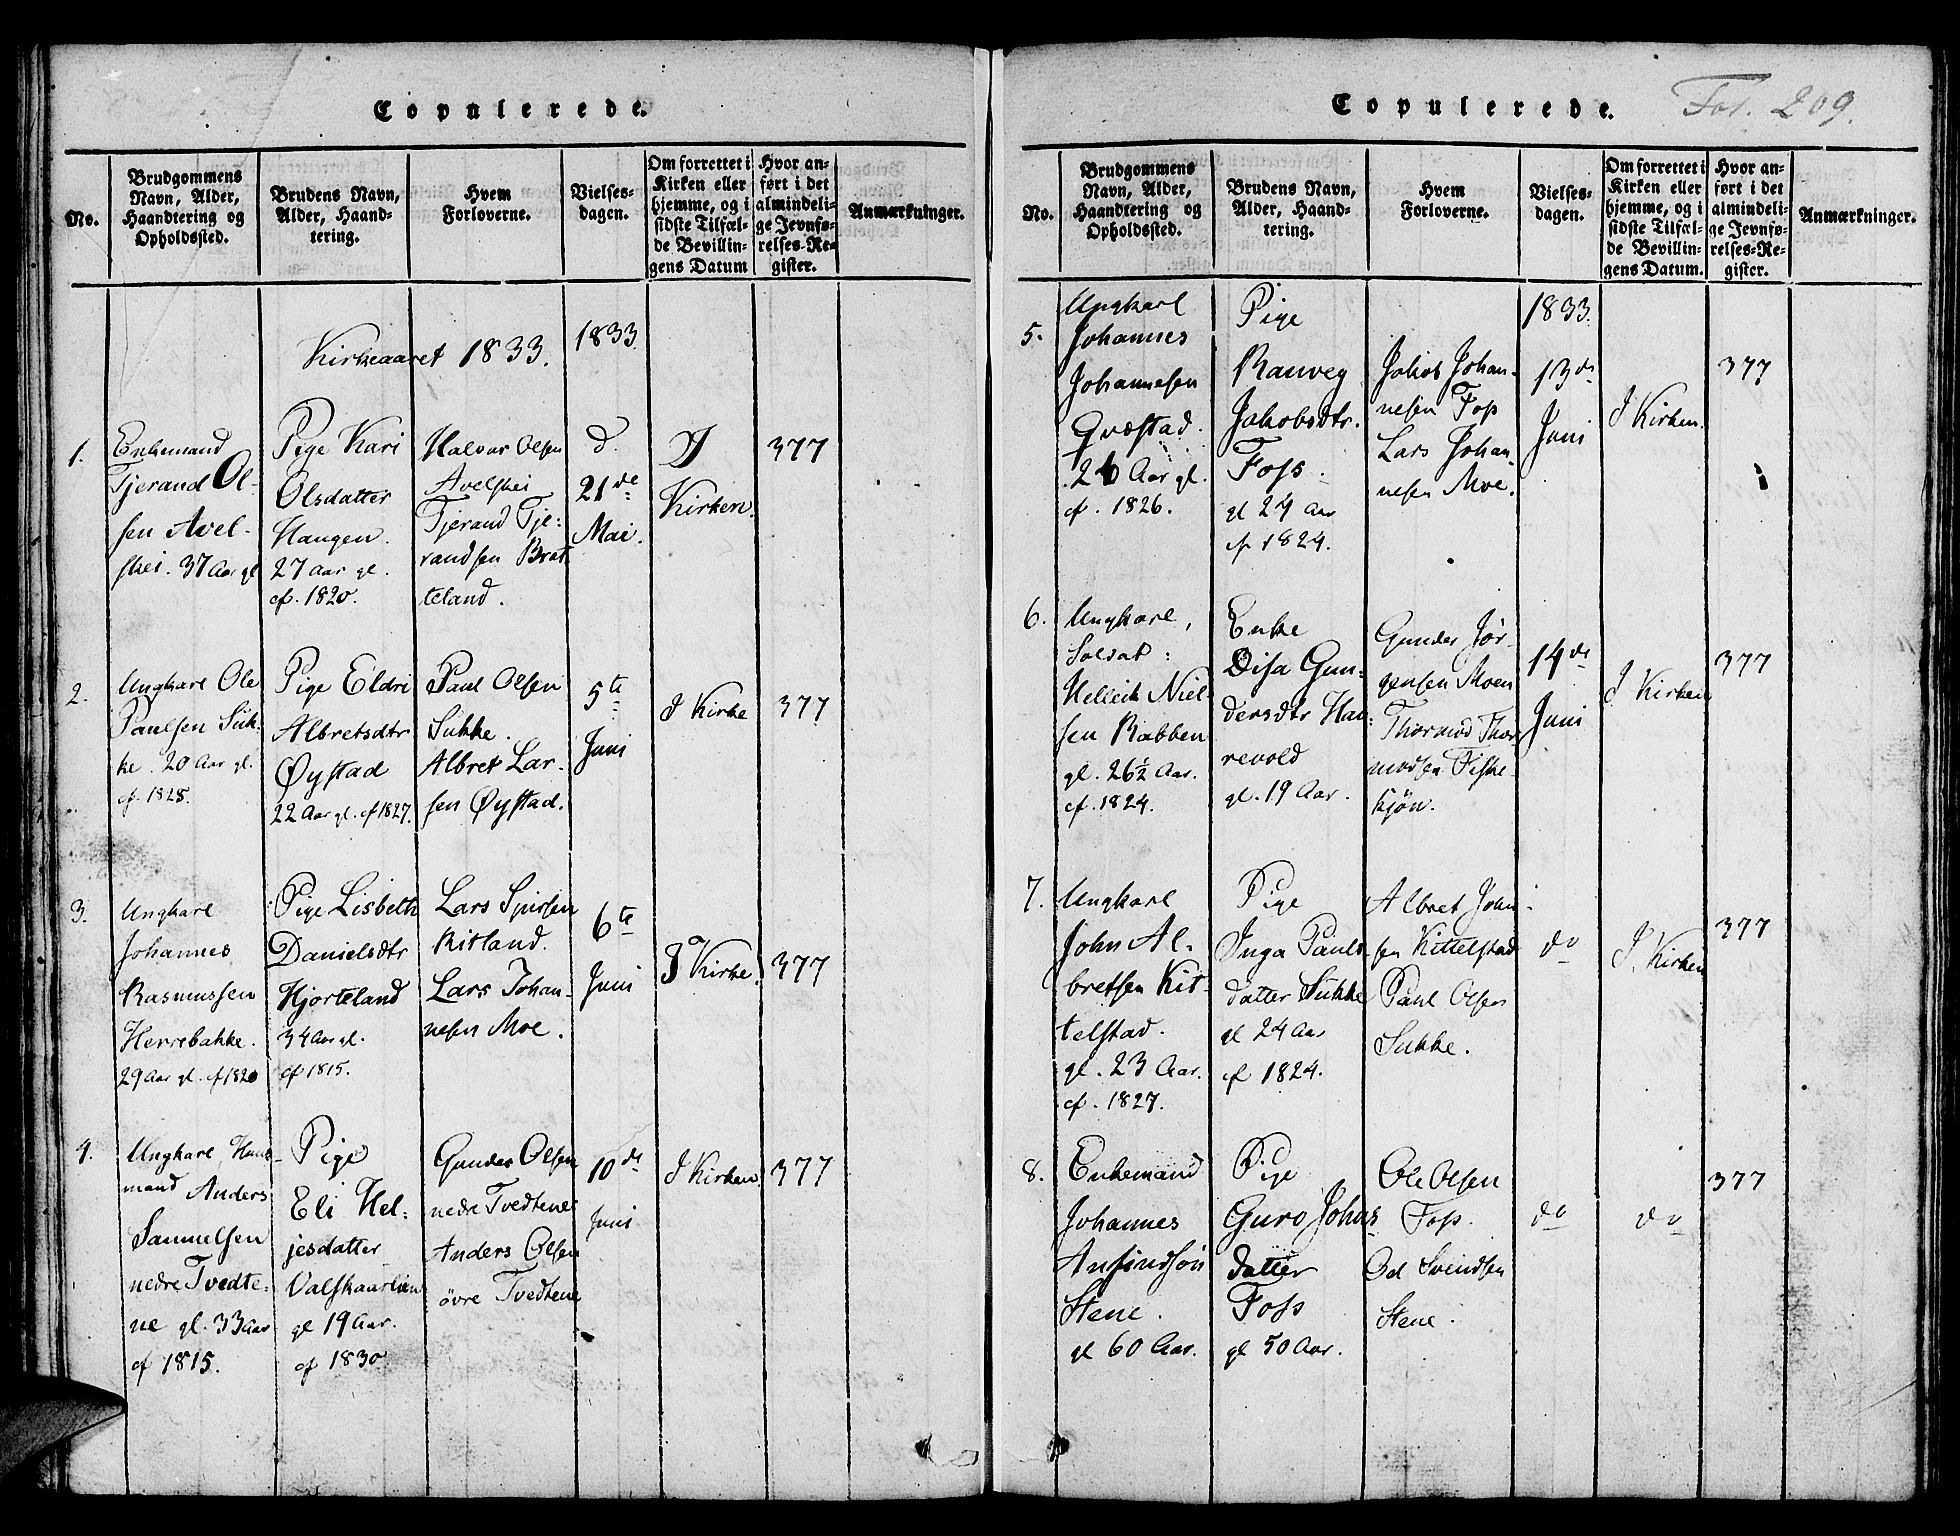 Copulerede.
No.
Brudgommens
Navn, Alder,
Haandtering og
Opholdssted.
Brudens Navn,
Alder, Haand-
tering.
Hvem
Forloverne.
Vielses-
dagen.
Om forrettet i
Kirken eller
hjemme, og i
sidste Tilfæl-
de Bevillin-
gens Datum
Hvor an-
ført i det
almindeli-
ge Jevnfø-
relses-Re-
gister.
Anmærkninger.
Kirkeaaret 1833.
1833
1.
Enkemand
Tjerand Ol-
sen Avel-
skei. 37 Aar gl
Pige Kari
Olsdatter
Haugen.
27 Aar gl.
cf. 1820.
Halvor Olsen
Avelskei
Tjerand Tje:
randsen Brat
teland.
d.
21de
Mai.
I
Kirken.
377
2.
Ungkarl Ole
Paulsen Suk-
ke. 20 Aar gl.
cf. 1828.
Pige Eldri
Albretsdtr
Øystad
22 Aar gl. cf 1827.
Paul Olsen
Sukke.
Albret Lar-
sen Øystad.
5te
Juni
I Kirke
377
3.
Ungkarl
Johannes
Rasmussen
Herrebakke.
29 Aar gl. cf 1820
Pige Lisbeth
Danielsdtr
Hjorteland
34 Aar gl.
cf 1815.
Lars Sjursen
Ritland.
Lars Johan-
nesen Moe.
6te
Juni
I Kirke.
377
4.
Ungkarl, Huus-
mand Anders
Samuelsen
nedre Tvedte-
ne gl. 33 Aar
cf 1815.
Pige
Eli Hel:
jesdatter
Valskaarlien
gl 19 Aar.
cf 1830
Gunder Olsen
nedre Tvedtene
Anders Olsen
øvre Tvedtene
10de
Juni
I Kirken.
377
Copulerede.
Fol. 209.
No.
Brudgommens
Navn, Alder,
Haandtering og
Opholdssted.
Brudens Navn,
Alder, Haand-
tering.
Hvem
Forloverne.
Vielses-
dagen.
Om forrettet i
Kirken eller
hjemme, og i
sidste Tilfæl-
de Bevillin-
gens Datum.
Hvor an-
ført i det
almindeli-
ge Jevnfø-
relses-Re-
gister.
Anmærkninger.
5.
Ungkarl
Johannes
Johannesen
Qvæstad.
26 Aar gl.
cf. 1826.
Pige
Ranveg
Jakobsdtr.
Foss.
gl 24 Aar
cf 1824.
Jakob Johan-
nesen Foss
Lars Johan-
nesen Moe.
1833.
13de
Juni
I Kirken.
377
6.
Ungkarl,
Soldat:
Helleik Niel-
sen Rabben
gl. 26½ Aar.
cf. 1824.
Enke
Disa Gun-
dersdtr Hau-
revold
gl. 19 Aar.
Gunder Jør-
gensen Moen
Thormod Thor
modsen Fiske-
kjøn.
14de
Juni
I Kirken
377
7.
Ungkarl
John Al-
bretsen Kit-
telstad.
gl. 23 Aar.
cf. 1827.
Pige
Inga Pauls-
datter Sukke
gl 24 Aar
cf 1824.
Albret John-
sen Kittelstad
Paul Olsen
Sukke.
do
I. Kirken
377
8.
Enkemand
Johannes
Ansindsøn
Stene.
gl 60 Aar.
Pige
Guro Johns
datter
Foss
gl 50 Aar.
Ole Olsen
Foss.
Od Svendsen
Stene.
do
do
377